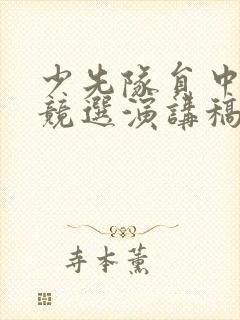 少先隊員中
競選演講稿
寺本薰